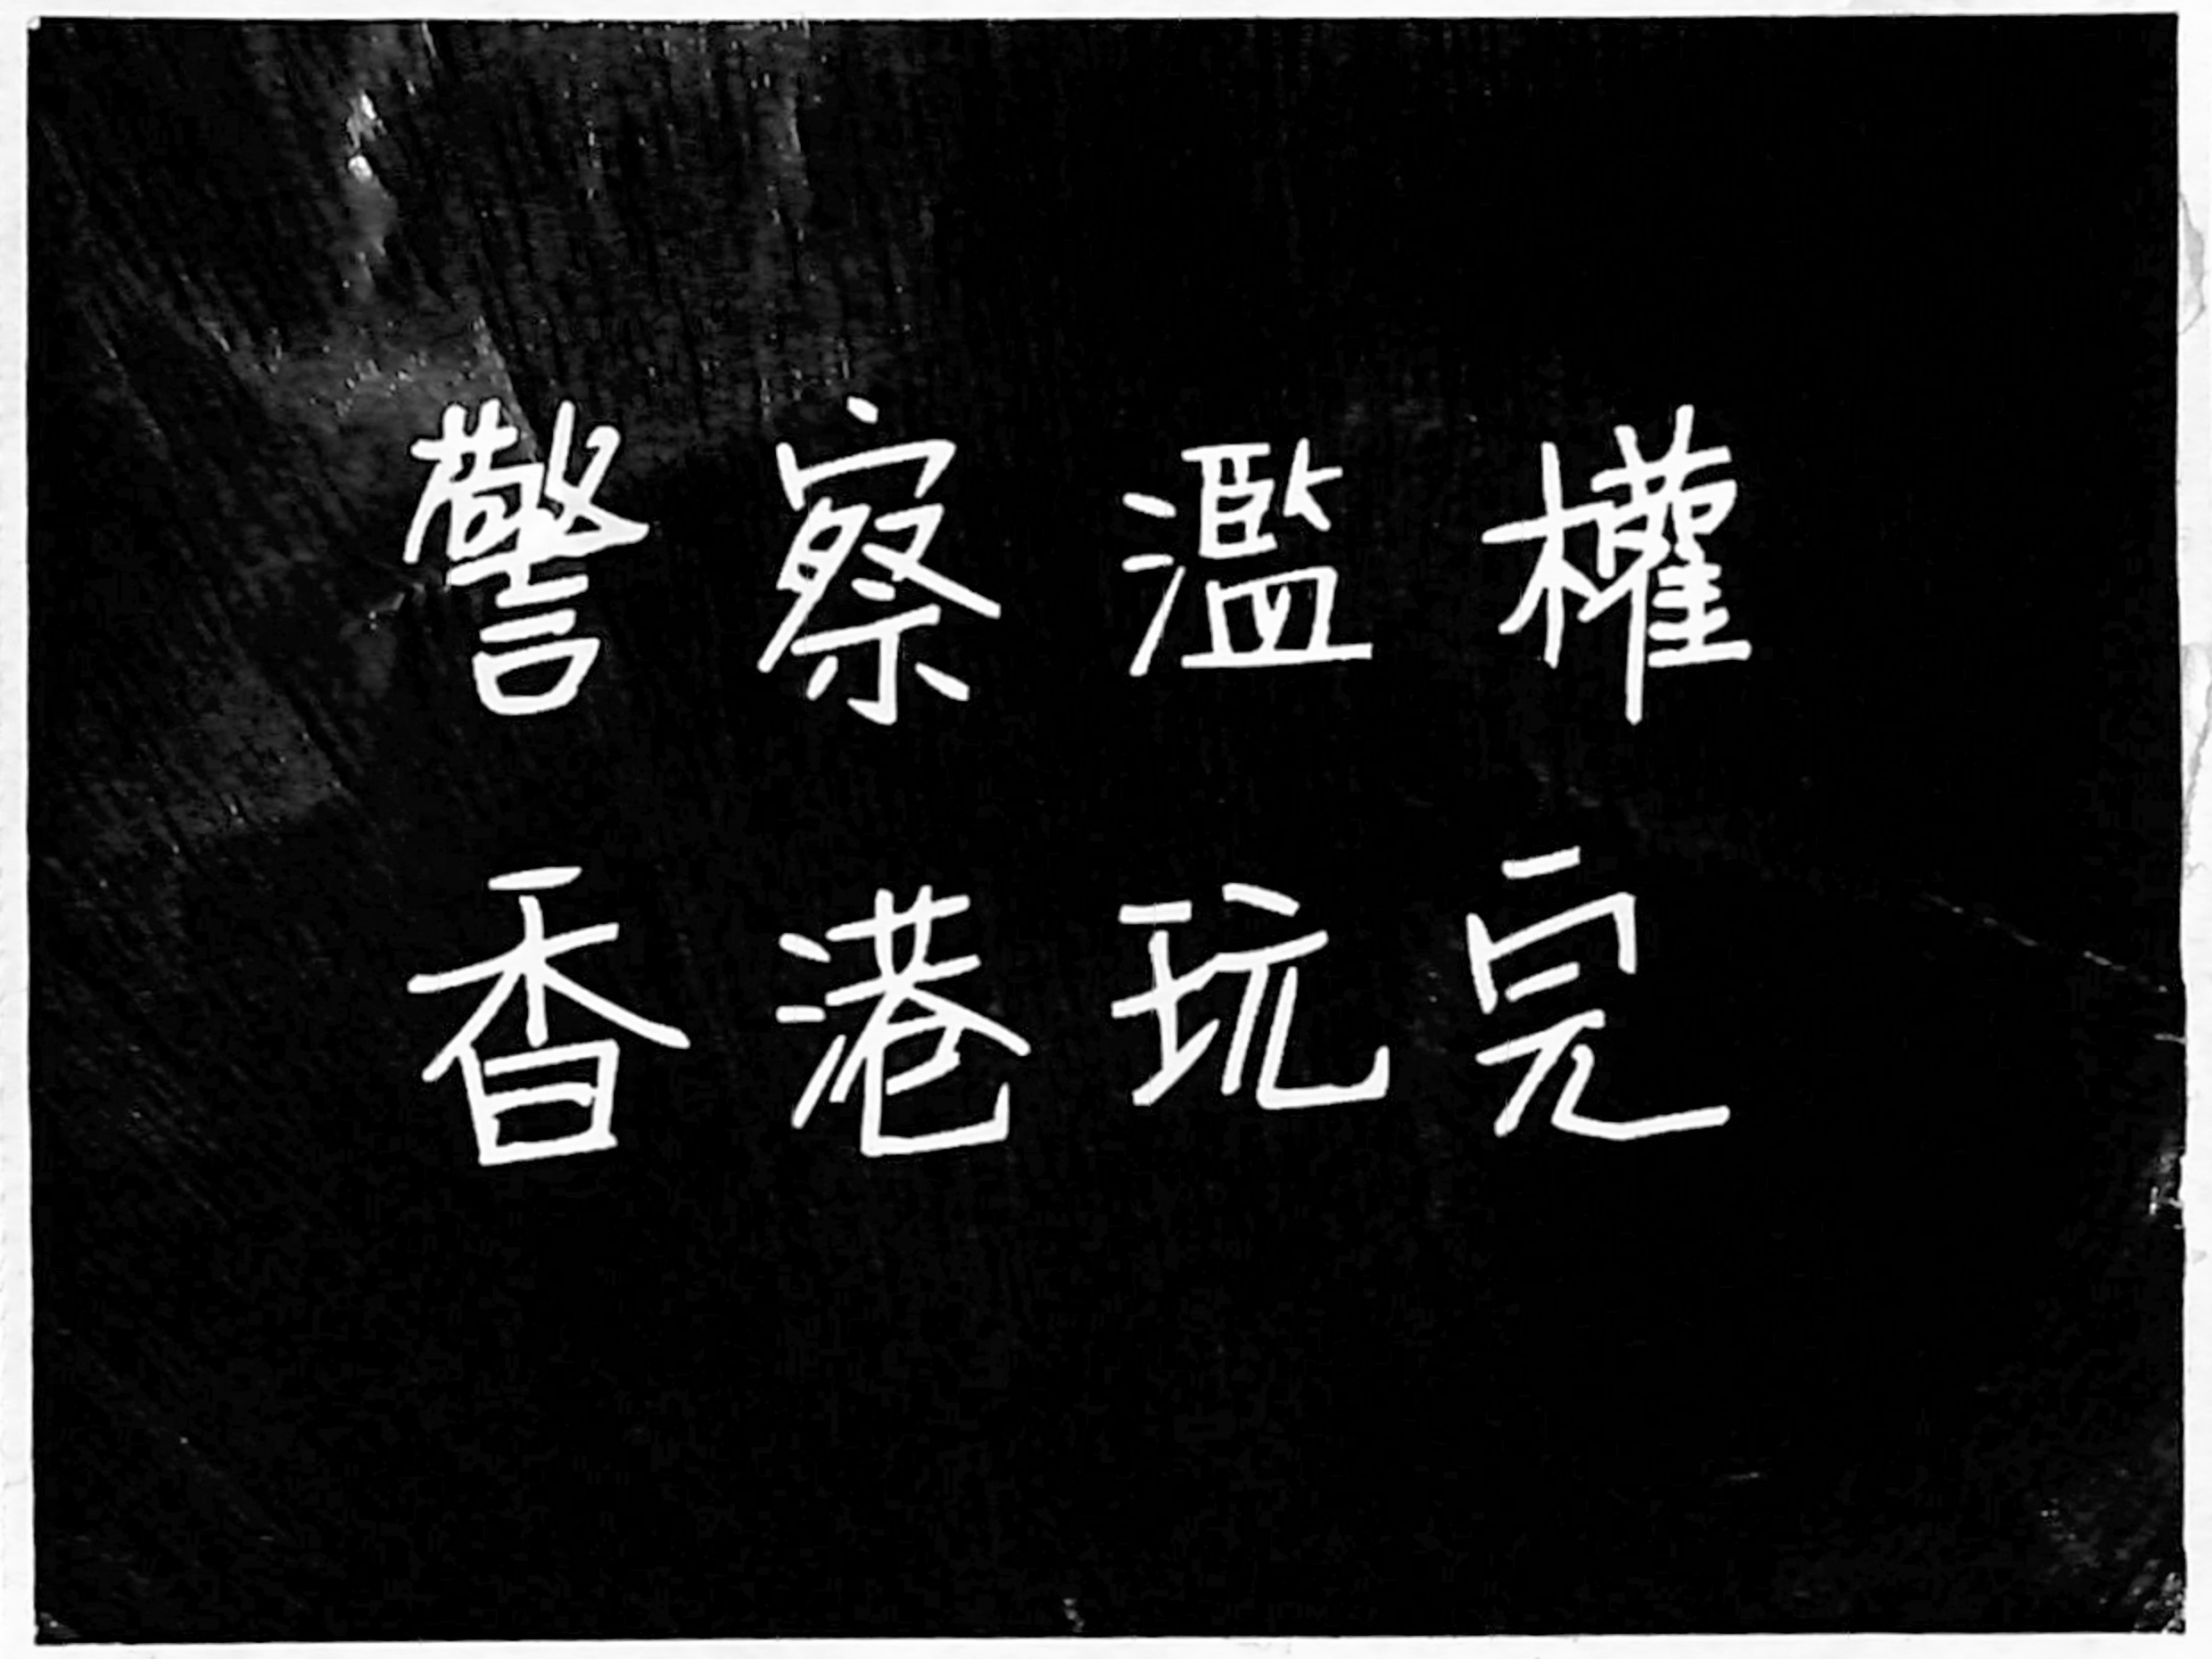 警察濫權
香港玩完